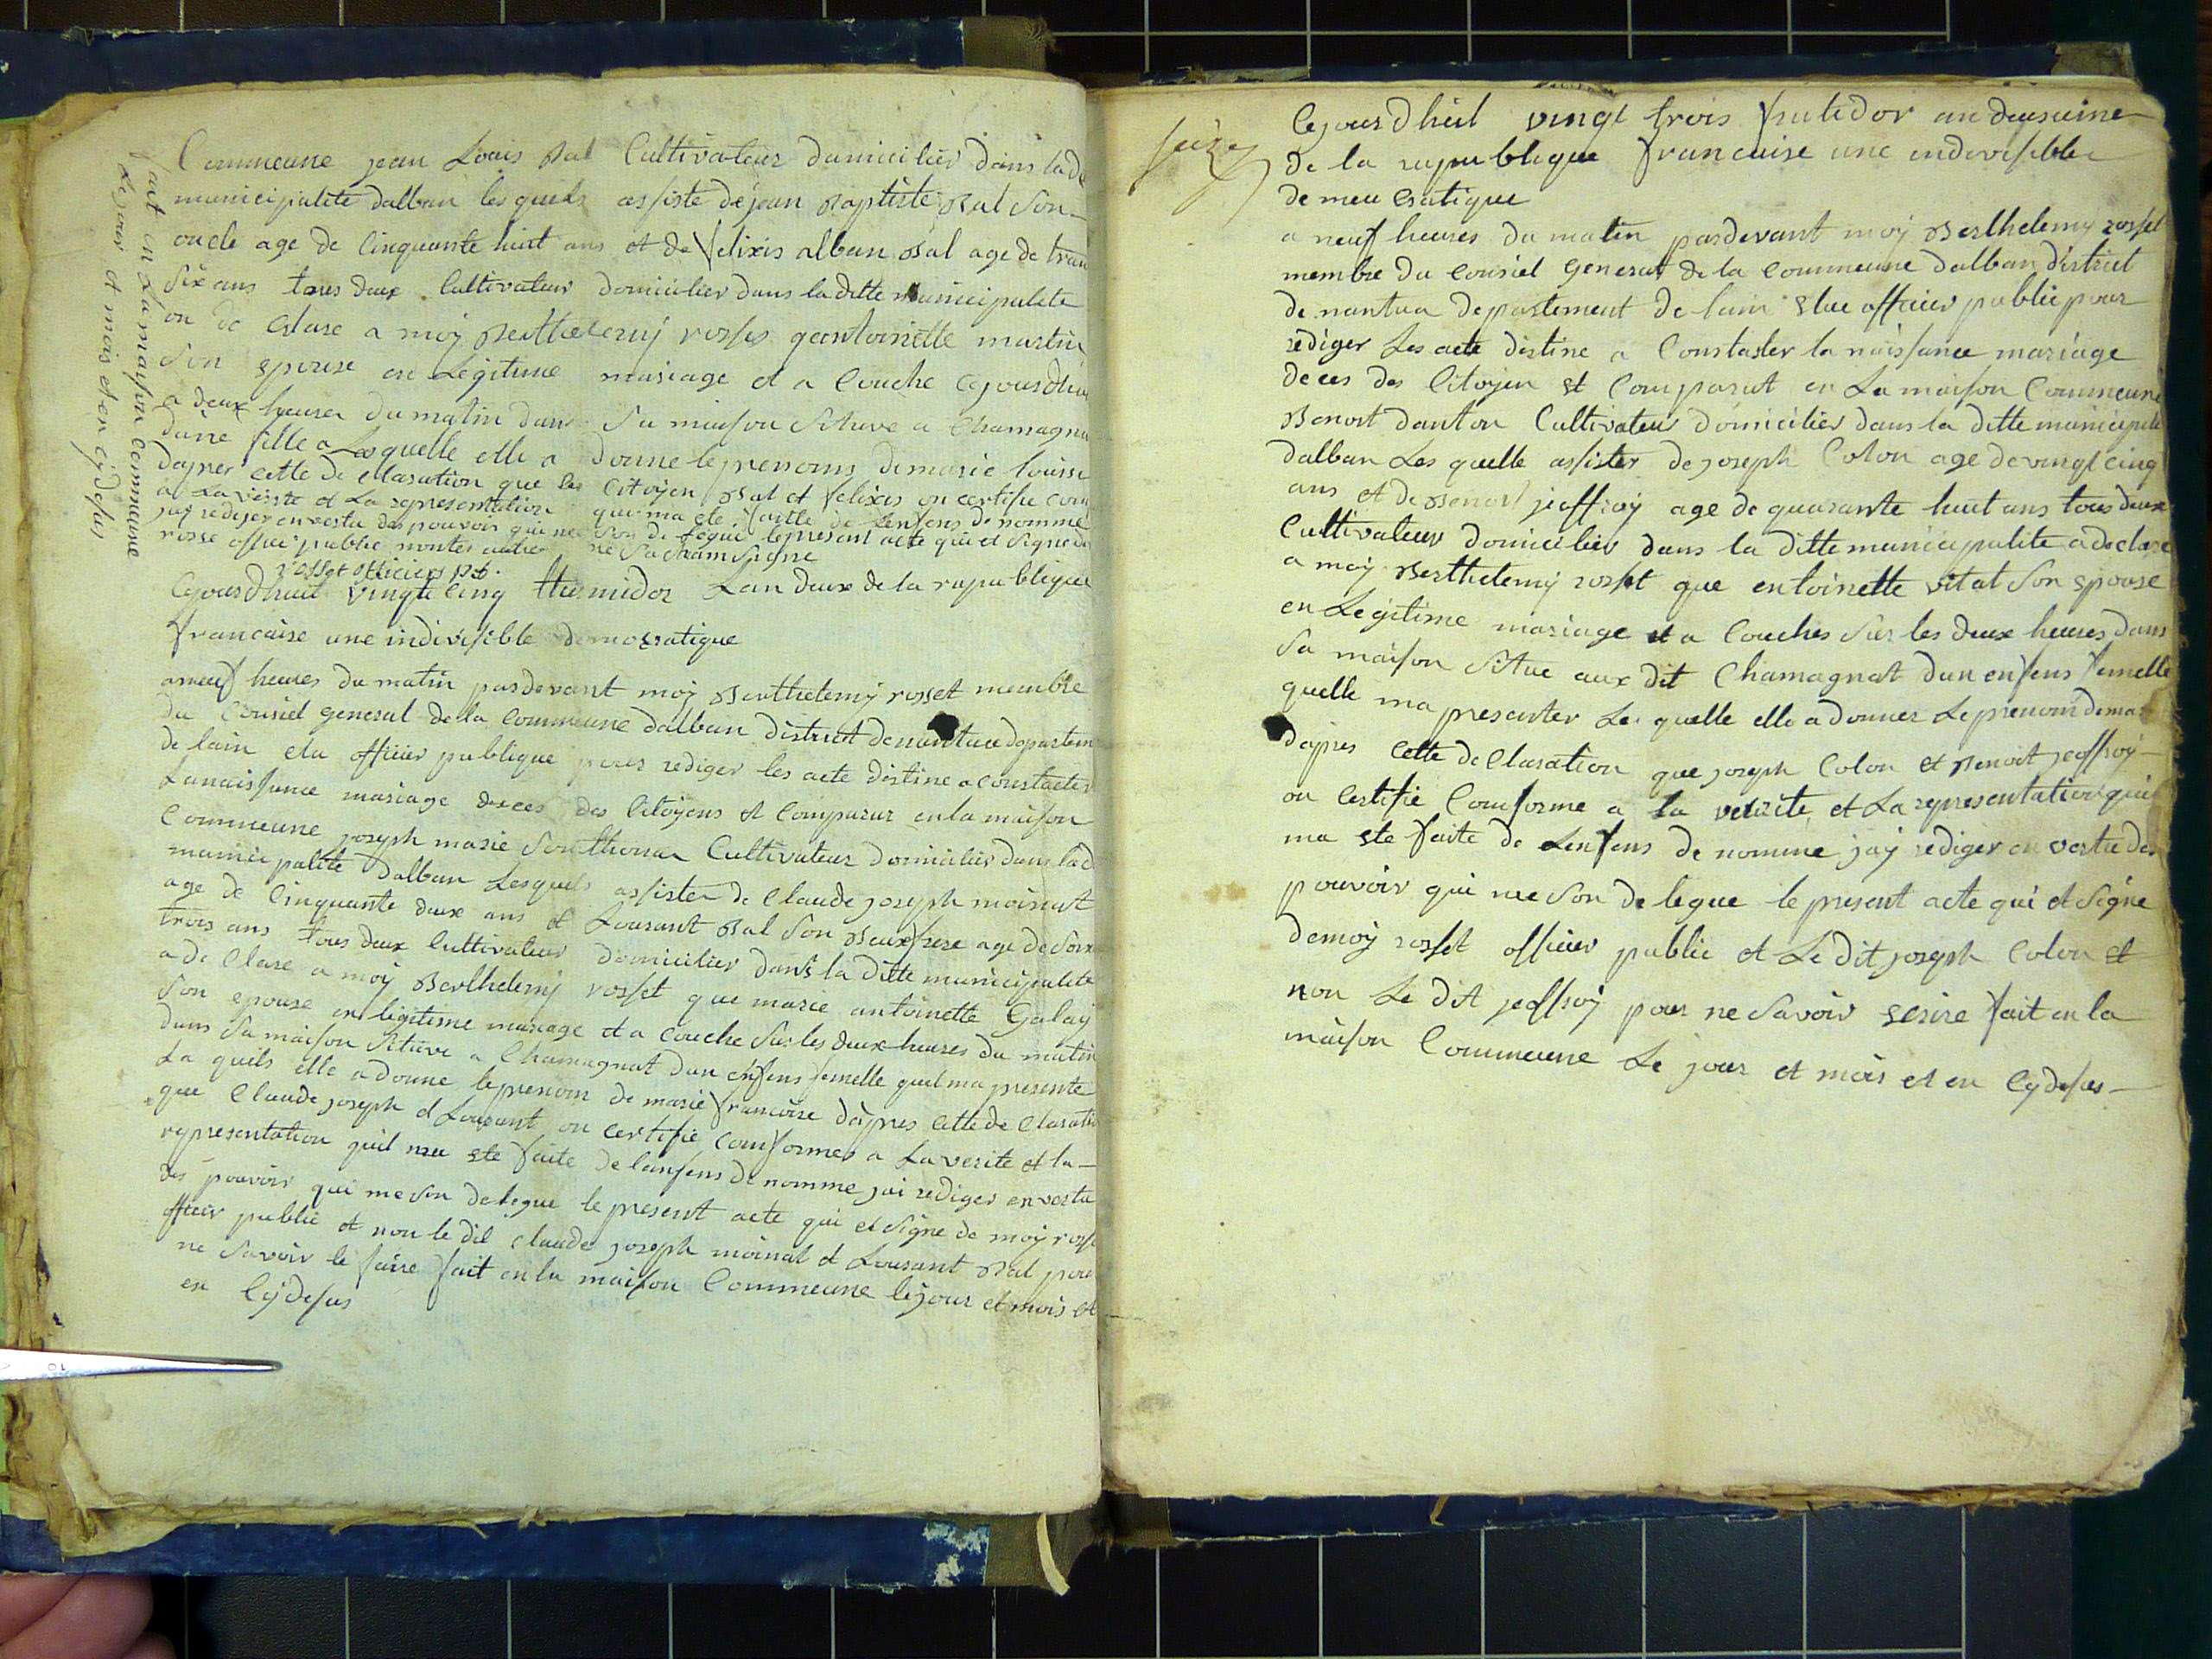 Commeune jean Louis Bal Cultivateur damicilier dans lad
municipalite dalban les quels assiste de jean Baptiste Bal Son
oncle age de Cinquante huit ans et de felixis alban Bal age de tran
Six ans tous deux Cultivateur domicilier dans la ditte municipalite
on de Clare a moy Berthelemy rosset qantoinette martin
Son epouse en Legitime mariage et a Couche Cejourdhui
a deux heures du matin dans Sa maison Situve a Chamagna
dune fille a Lesquelle elle a donne le prenoms de marie louise
dapres cette de Claration que les Citoyen Bal et felixis on certifie com
a La verite et La representation qui ma ete faitte de Lenfens de nomme
jay rediger en vertu des pouvoir qui me Son de legue le present acte qui et Signe de
rosse officier public nontes autre ne Sacham Signe
rosset officiers pb.
Cejourdhuit vingte Cinq thermidor Lan deux de la republique
francaise une indivisible democratique
a neuf heures du matin pardevant moy Berthelemy rosset membre
du Consiel general de la Commeune dalban district de nantua departem
de lain elu officier publique pour rediger les acte distine a constater
La naissance mariage deces des Citoyens et Comparur en la maison
Commeune joseph marie Sonthonax Cultivateur domicilier dans lad
municipalite dalban Lesquels assister de Claude joseph moinat
age de Cinquante deux ans et Lourant Bal Son Beuxfrere age de Soix
trois ans tous deux Cultivateur domicilier dans la ditte municipalite
a de Clare a moy Berthelemy rosset que marie antoinette Galay
Son epouse en legitime mariage et a couche Sur les deux heures du matin
dans Sa maison Situve a Chamagnat dun enfens femelle quil ma presente
La quels elle a donne le prenom de marie francoise dapres cette de Claratio
que Claude joseph et Lourant on certifie conformes a La verite et la
representation quil ma ete faite de lenfens de nomme jai rediger en vertu
des pouvoir qui me Son delegue le present acte qui et Signe de moy rosse
officir public et non le dit claude joseph moinat et Lourant Bal pour
ne Savoir le faire fait en la maison Commeune le jour et mois et
en Cydesus
fait en La maison Commeune
Le jour et mois et en Cydesus
Seize
Cejourdhuit vingt trois frutidor an deuxieme
de la republique francaise une indivisible
de meu Cratique
a neuf heures du matin pardevant moy Berthelemy rosset
membre du Consiel General de la Commeune dalban district
de nantua departement de lain Elue officier public pour
rediger Les acte distine a Constaster la naissance mariage
deces des Citoyen et Comparut en La maison Commeune
Benoit danton Cultivateur domicilier dans la ditte municipalite
dalban Les quelle assister de joseph Colon age de vingt cinq
ans et de Benoit jeoffroy age de quarante huit ans tous deux
Cultivateur domicilier dans la ditte municipalite a de clare
a moy Berthelemy rosset que entoinette vital Son epouse
en Legitime mariage et a Couches Sur les deux heures dans
Sa maison Situe aux dit Chamagnat dun enfens femelle
quelle ma presenter Le quelle elle a donner Le prenom de mar
dapres cette de Claration que joseph Colon et Benoit jeoffroy
on Certifie Comforme a la verite et La representation qui
ma ete faite de Lenfens de nomme jay rediger en vertu des
pouvoir qui me Son de legue le present acte qui et Signe
de moy rosset officier public et Le dit joseph Colon et
non Le dit jeoffroy pour ne Savoir ecrire fait en la
maison Commeune Le jour et mois et en Cydesus